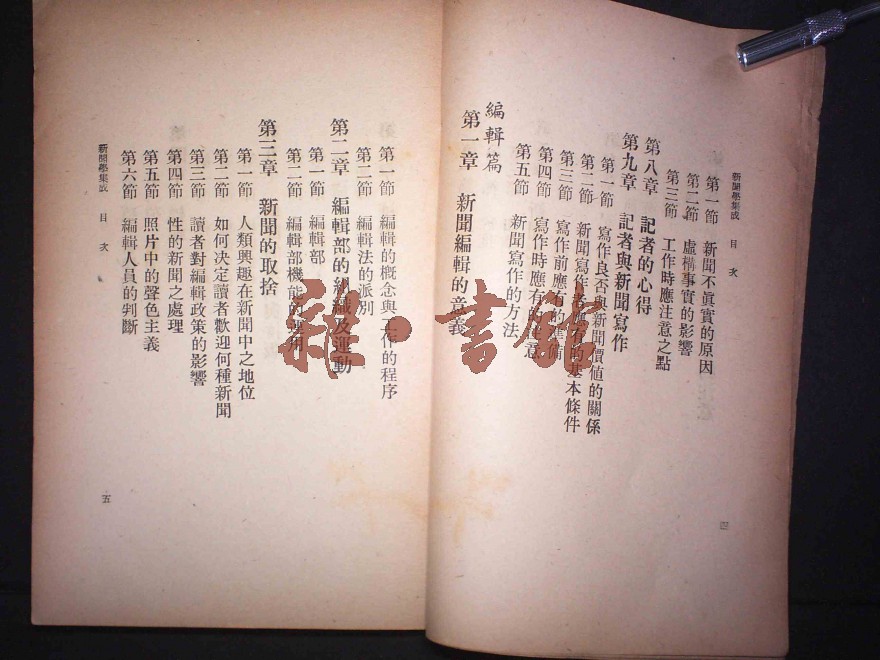 新聞學集成 目次
第一節 新聞不眞實的原因
第二節 虛構事實的影響
第三節 工作時應注意之點
第八章 記者的心得
第九章 記者與新聞寫作
第一節 寫作良否與新聞價値的關係
第二節 新聞寫作者應有的基本條件
第三節 寫作前應有的準備
第四節 寫作時應有的注意
第五節 新聞寫作的方法
編輯篇
第一章 新聞編輯的意義
四
第一節 編輯的概念與工作的程序
第二節 編輯法的派別
第二章 編輯部的組織及運動
第一節 編輯部
第二節 編輯部機能的運用
第三章 新聞的取捨
第一節 人類興趣在新聞中之地位
第二節 如何決定讀者歡迎何種新聞
第三節 讀者對編輯政策的影響
第四節 性的新聞之處理
第五節 照片中的聲色主義
第六節 編輯人員的判斷
新聞學集成 目次
五
雜·書館